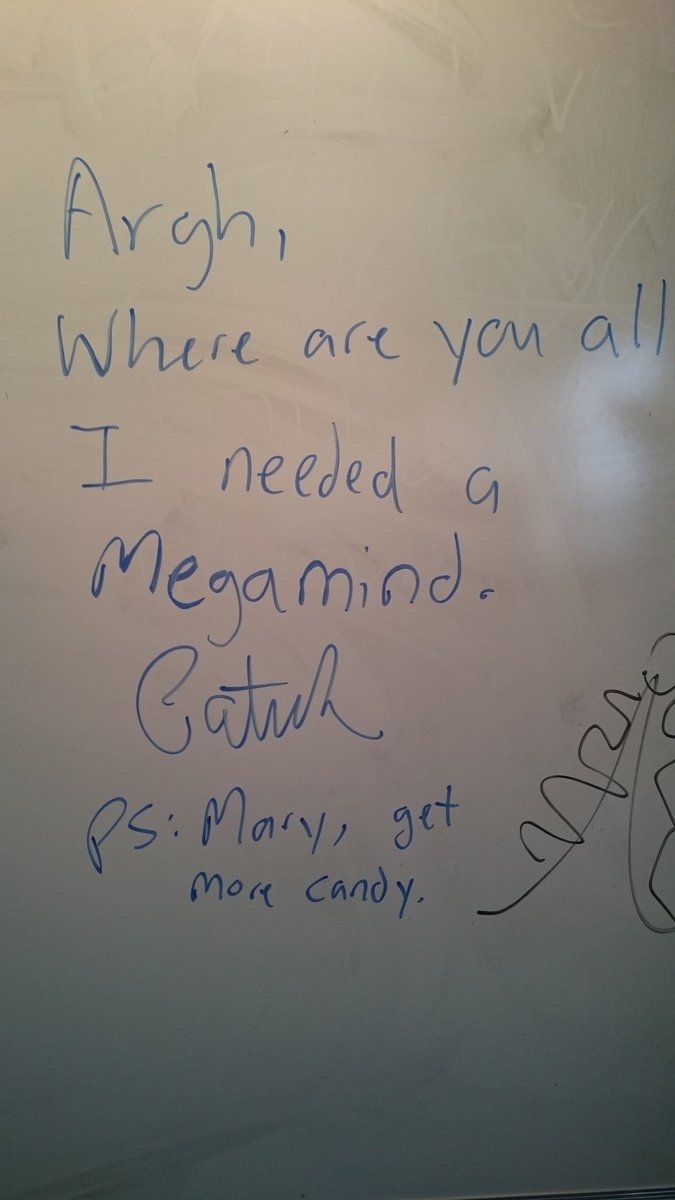 Argh,
Where are you all
I needed a
Megamind.
PS: Mary, get
more candy.